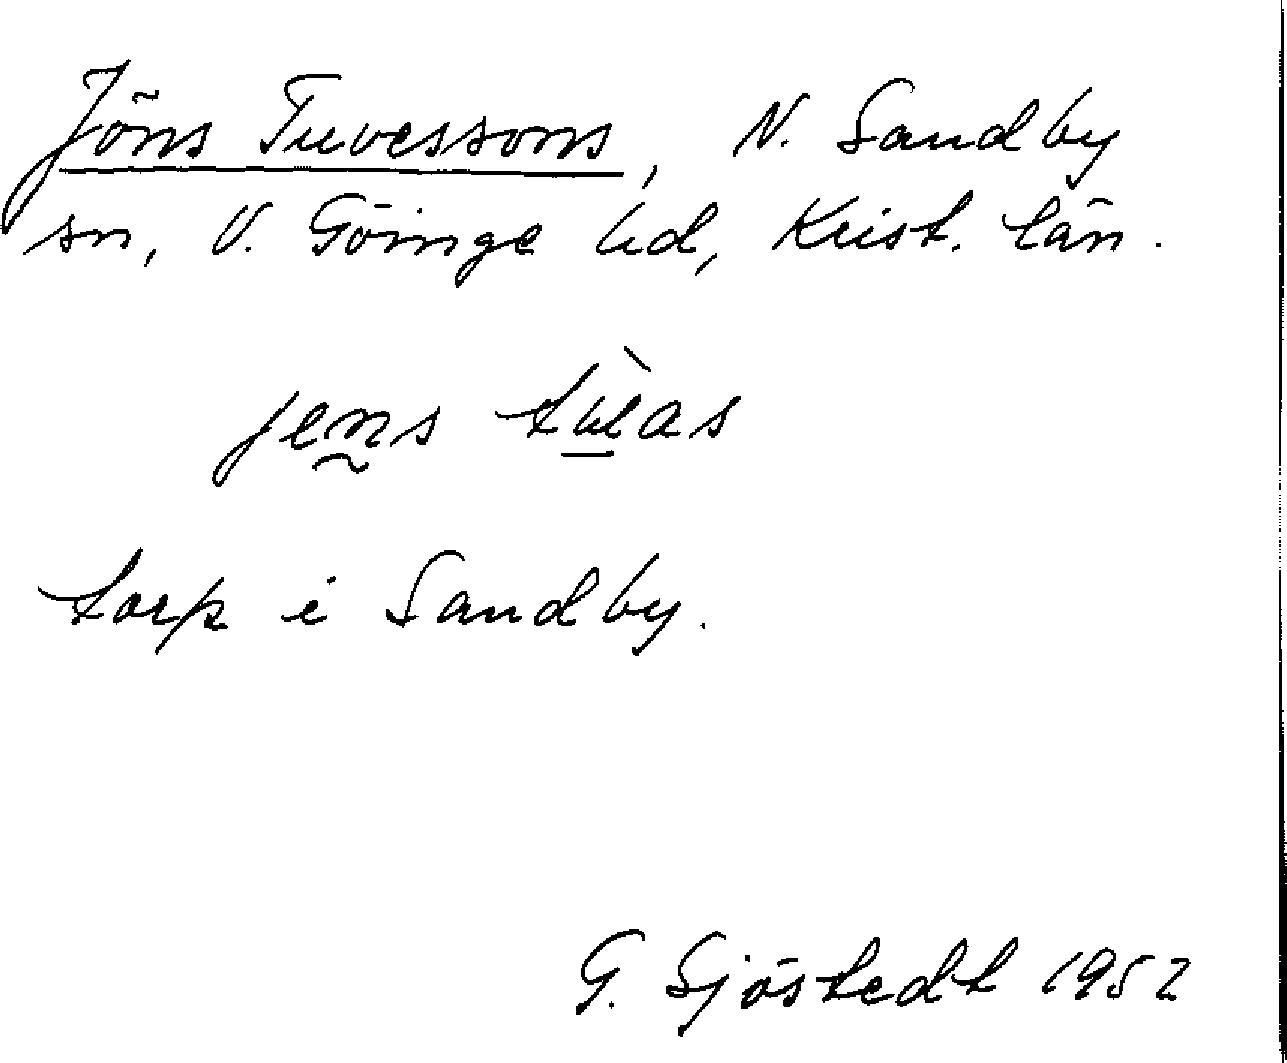 Jöns Tuvessons, N. Sandby
sn, V. Göinge hd, Krist. län.
jens
torp i Sandby.
G. Sjöstedt 1952